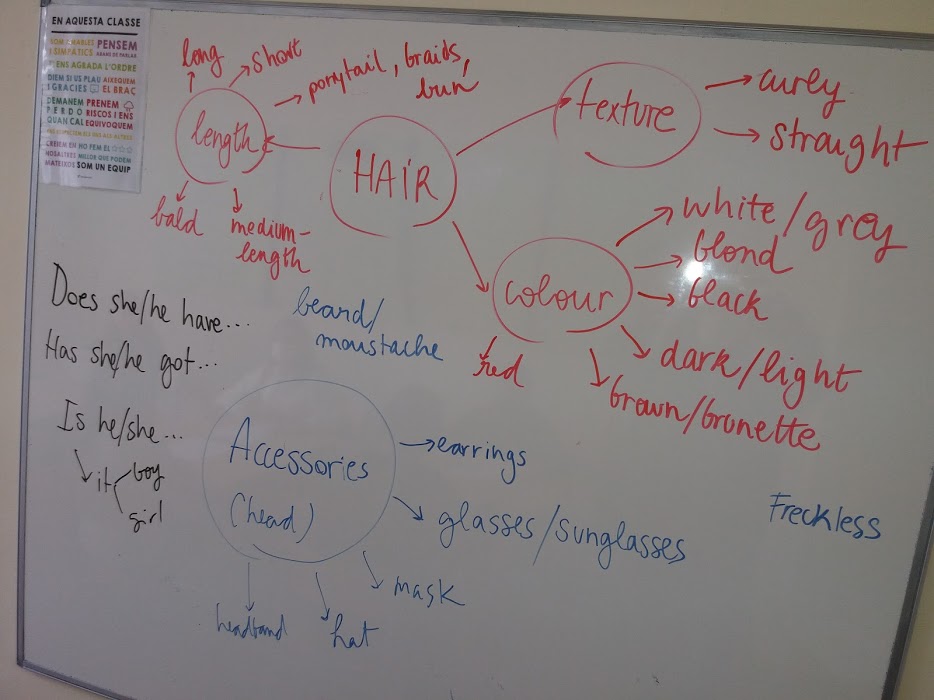 EN AQUESTA CLASSE
PENSEM
ABANS DE PARLAR
SIMPÀTICS
ENS AGRADA L'ORDRE
DIEM SI US PLAU AIXEQUEM
I GRÀCIES EL BRAÇ
DEMANEM PRENEM
PERDÓ RISCOS I ENS
QUAN CAL EQUIVOQUEM
CREIEM EN NO FEM EL
NOSALTRES MILLOR QUE PODEM
MATEIXOS SOM UN EQUIP
long
short
ponytail, braids,
bun
length
bald
medium-
length
HAIR
texture
curly
straight
colour
white/grey
blond
black
dark/light
brown/brunette
red
Does she/he have...
Has she/he got...
Is he/she...
it
boy
girl
beard/
moustache
Accessories
(head)
earrings
glasses/sunglasses
mask
hat
headband
Freckless